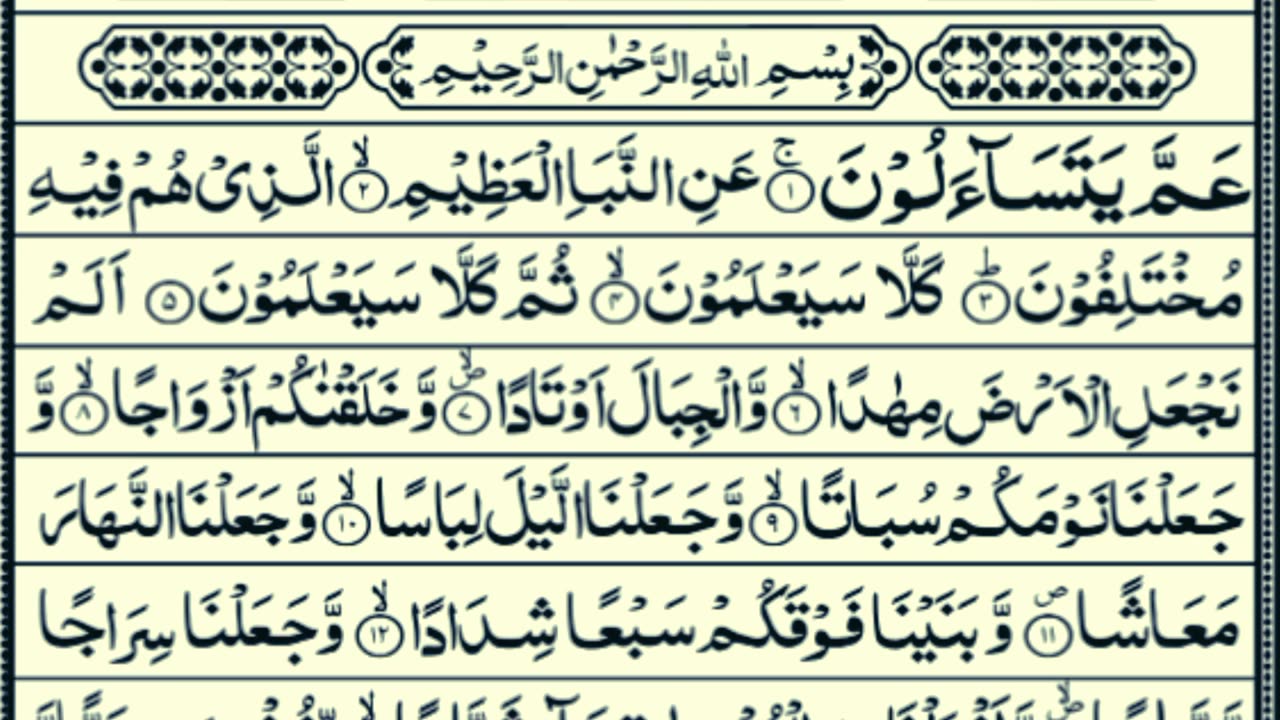 بِسْمِ اللّٰهِ الرَّحْمٰنِ الرَّحِيْمِ
عَمَّ يَتَسَآءَلُوْنَ ۚ﴿۱﴾ عَنِ النَّبَاِ الْعَظِيْمِ ۙ﴿۲﴾ الَّذِىْ هُمْ فِيْهِ
مُخْتَلِفُوْنَ ؕ﴿۳﴾ كَلَّا سَيَعْلَمُوْنَ ۙ﴿۴﴾ ثُمَّ كَلَّا سَيَعْلَمُوْنَ ﴿۵﴾ اَلَمْ
نَجْعَلِ الْاَرْضَ مِهٰدًا ۙ﴿۶﴾ وَّالْجِبَالَ اَوْتَادًا ۪ۙ﴿۷﴾ وَّخَلَقْنٰكُمْ اَزْوَاجًا ۙ﴿۸﴾ وَّ
جَعَلْنَا نَوْمَكُمْ سُبَاتًا ۙ﴿۹﴾ وَّجَعَلْنَا الَّيْلَ لِبَاسًا ۙ﴿۱۰﴾ وَّجَعَلْنَا النَّهَارَ
مَعَاشًا ۪﴿۱۱﴾ وَّ بَنَيْنَا فَوْقَكُمْ سَبْعًا شِدَادًا ۙ﴿۱۲﴾ وَّجَعَلْنَا سِرَاجًا